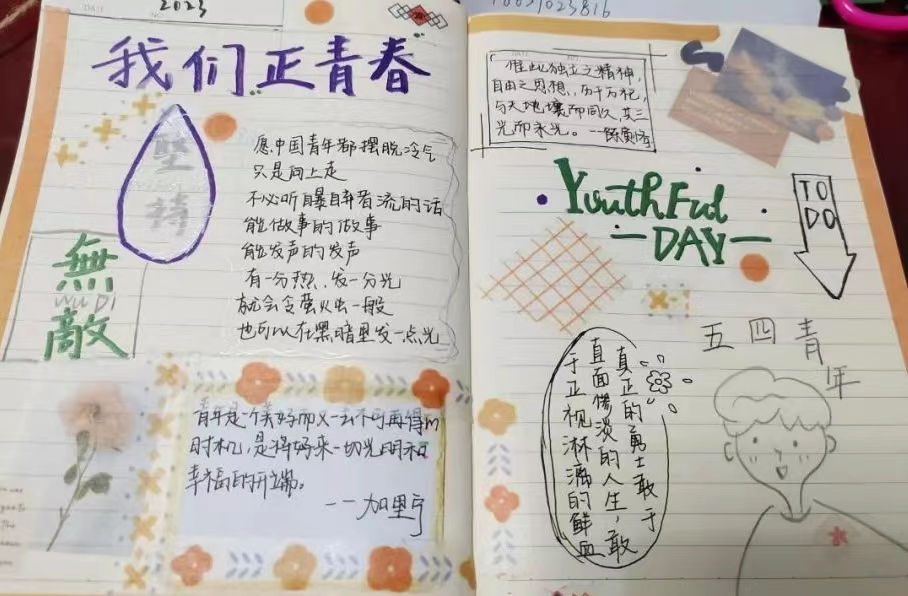 2023
我们正青春
坚持
愿中国青年都摆脱冷气
只是向上走
不必听自暴自弃者流的话
能做事的做事
能发声的发声
有一分热,发一分光
就会令萤火虫一般
也可以在黑暗里发一点光
無
WU DI
敵
青年是一个美好而又一去不可再得的
时机,是将好来一切光明和
幸福的开端。
——加里宁
惟此独立之精神,
自由之思想,历千万祀,
与天地壤而同久,共三
光而永光。—陈寅恪
YouthFul
—DAY—
TO
DO
五四青年
真正的勇士敢于
直面惨淡的人生,敢
于正视淋漓的鲜血